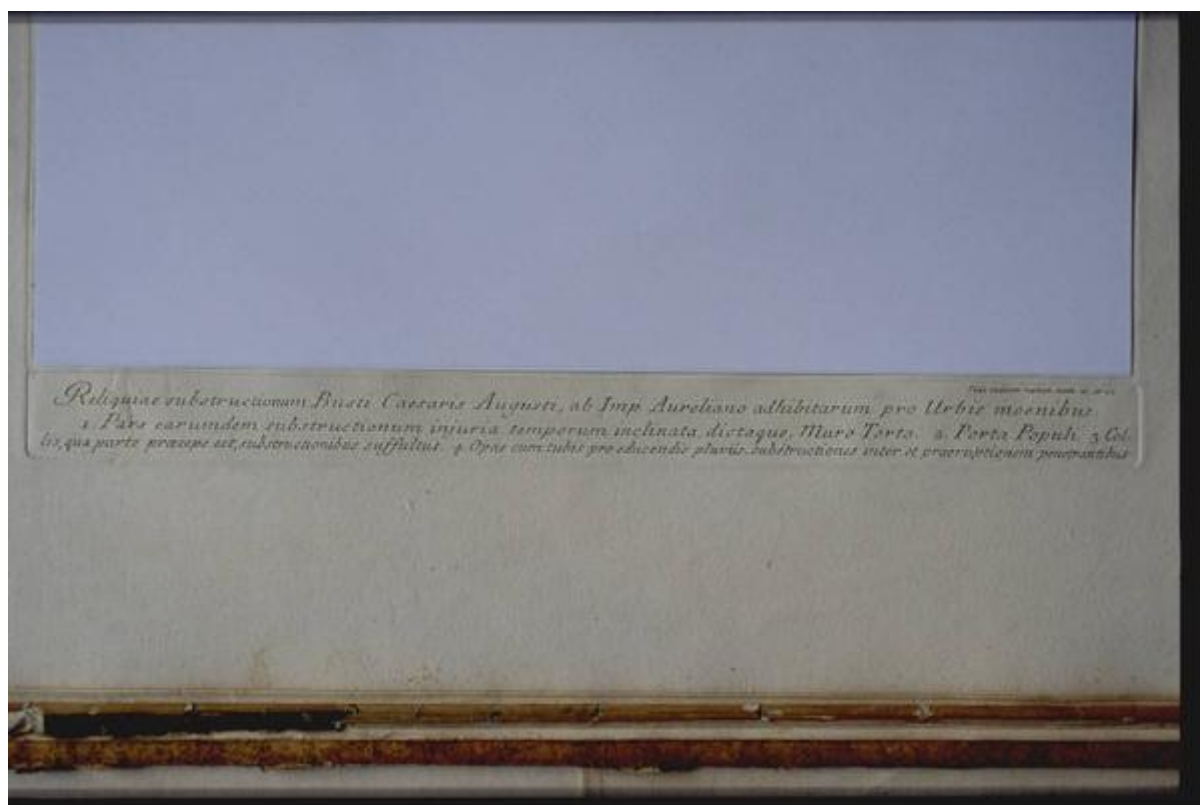 Reliquiae substructionum Busti Caesaris Augusti, ab Imp. Aureliano adhibitarum pro Urbis moenibus.
1. Pars earumdem substructionum injuria temporum inclinata, dictaque, Muro Torto. 2. Porta Populi. 3 Col-
lis, qua parte praeceps est, substructionibus suffultus. 4. Opus cum tubis pro educendis pluviis, substructiones inter et praeruptionem penetrantibus